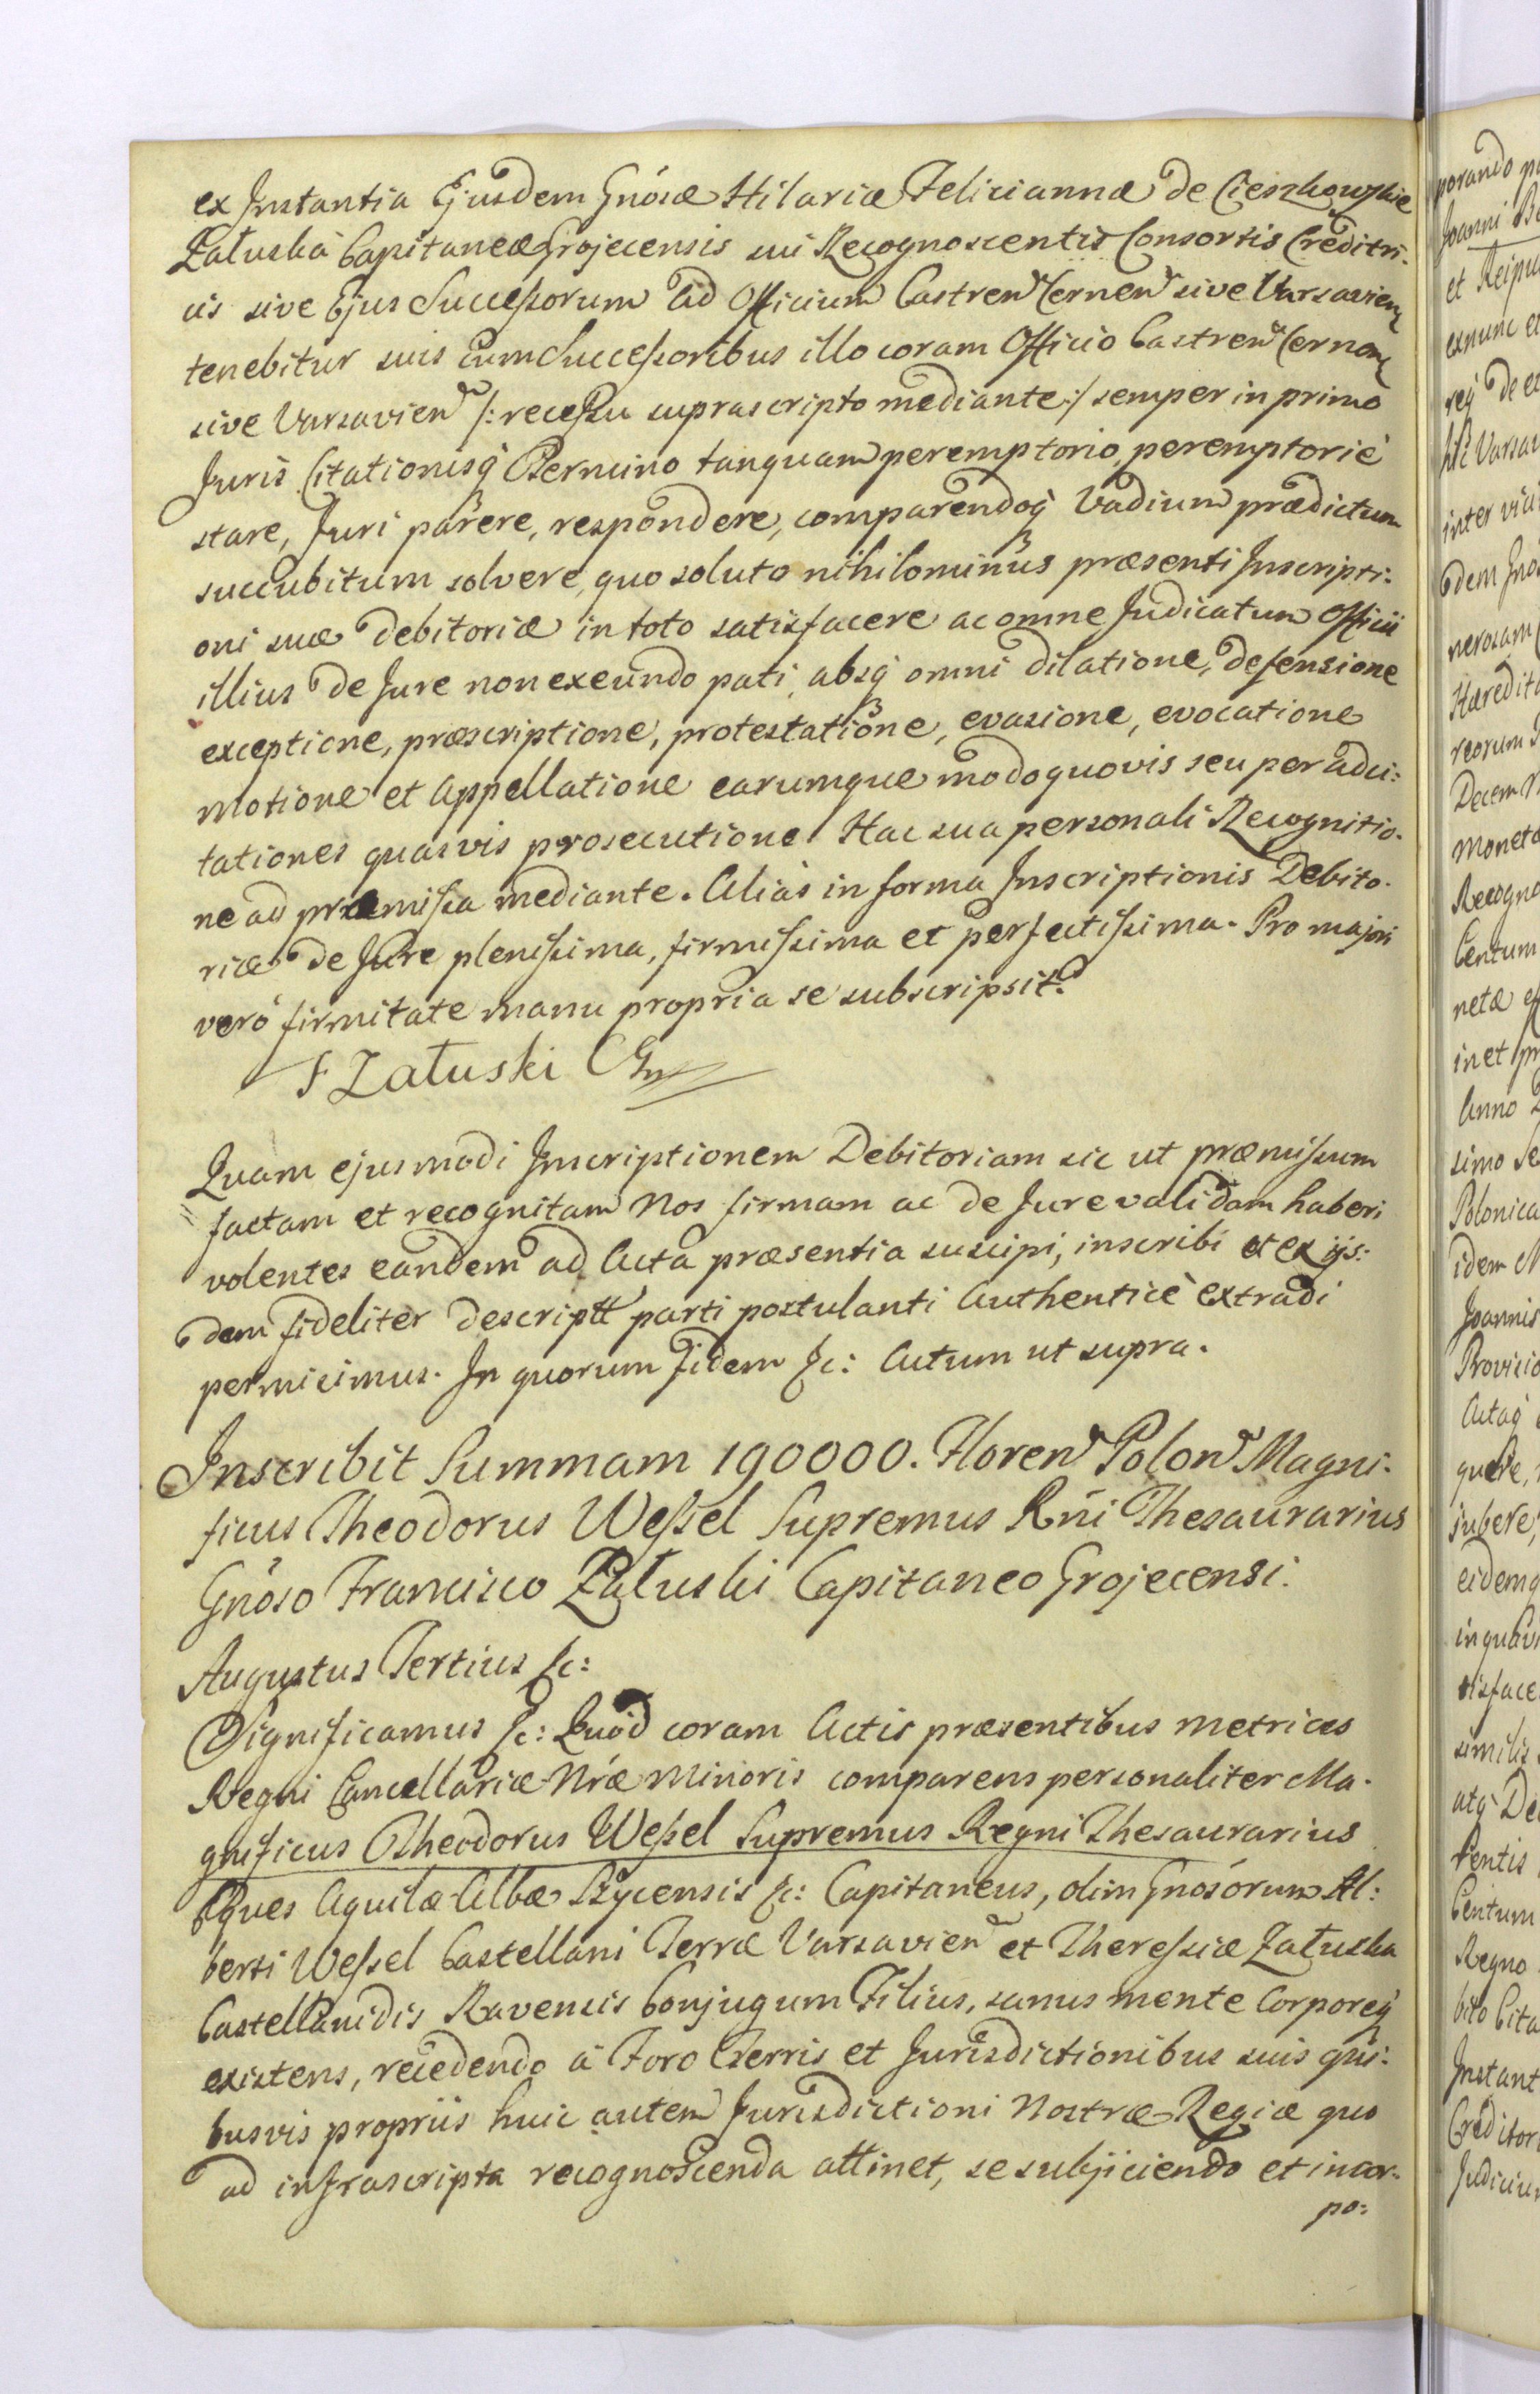 ex Instantia Ejusdem Gnósæ Hilariæ Feliciannæ de Cieszkowskie
Załuska Capitaneæ Grojecensis sui Recognoscentis Consortis Creditri.
cis sive Ejus Successorum ad Officium Castren Cernen sive Varsavien
tenebitur suis cum Successoribus illo coram Officio Castren Cernen
sive Varsavien /: recessu suprascripto mediante :/ semper in primo
Juris Citationisq Termino tanquam peremptorio, peremptoriè
stare, Juri parere, respondere, comparendoq Vadium prædictum
succubitum solvere, quo soluto nihilominus præsenti Inscripti:
oni suæ debitoriæ in toto satisfacere ac omne Judicatum Officii
illius de Jure non exeundo pati, absq omni dilatione, defensione
exceptione, præscriptione, protestatione, evasione, evocatione
motione et Appellatione earumque modo quovis seu per adci:
tationes quasvis prosecutione. Hac sua personali Recognitio.
ne ad præmissa mediante. Aliàs in forma Inscriptionis Debito.
riæ de Jure plenissima, firmissima et perfectissima. Pro majori
verò firmitate manu propria se subscripsit.
F Załuski
Quam ejusmodi Inscriptionem Debitoriam sic ut præmissum
factam et recognitam Nos firmam ac de Jure validam haberi
volentes eandem ad Acta præsentia suscipi, inscribi et ex ijs:
dem fideliter descriptt parti postulanti Authenticè extradi
permisimus. In quorum fidem &c: Actum ut supra.
Inscribit Summam 190000. Floren Polon Magni.
ficus Theodorus Wessel Supremus Rni Thesaurarius
Gnoso Francisco Załuski Capitaneo Grojecensi.
Augustus Tertius &c:
Significamus &c: Quod coram Actis præsentibus metrices
Regni Cancellariæ Nræ Minoris comparens personaliter Ma.
gnificus Theodorus Wessel Supremus Regni Thesaurarius
Eques Aquilæ Albæ Szycensis &c: Capitaneus, olim Gnosórum Al:
berti Wessel Castellani Terræ Varsavien et Theressiæ Załuska
Castellanidis Ravensis Conjugum Filius, sanus mente Corporeq
existens, recedendo à Foro Terris et Jurisdictionibus suis qui:
busvis propriis huic autem Jurisdictioni Nostræ Regiæ quo
ad infrascripta recognoscenda attinet, se subjiciendo et incor.
po: